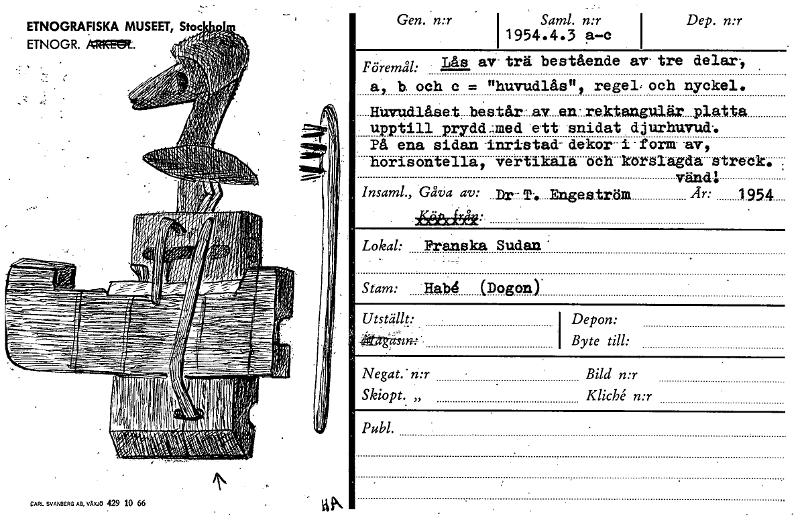 ETNOGRAFISKA MUSEET, Stockholm
ETNOGR. ARKEOL.
Gen. n:r
Saml. n:r
Dep. n:r
1954.4.3 a-c
Föremål: Lås av trä bestående av tre delar,
a, b och c = "huvudlås", regel och nyckel.
Huvudlåset består av en rektangulär platta
upptill prydd med ett snidat djurhuvud.
På ena sidan inristad dekor i form av,
horisontella, vertikala och korslagda streck.
vänd!
Insaml., Gåva av: Dr T. Engeström År: 1954
Köp från:
Lokal: Franska Sudan
Stam: Habé (Dogon)
Utställt:
Depon:
Magasin:
Byte till:
Negat. n:r
Bild n:r
Skiopt. „
Kliché n:r
Publ.
CARL SVANBERG AB, VÄXJÖ 429 10 66
HA